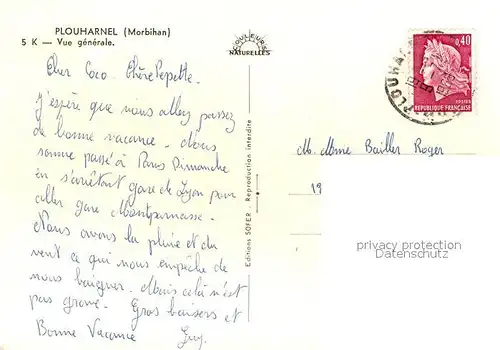 PLOUHARNEL (Morbihan)
5 K — Vue générale.
COULEURS
NATURELLES
Cher Coco. Chère Pepette.
J'espère que vous allez passez
de bonne vacance. Nous
somme passé à Paris Dimanche
en s'arrêtant gare de Lyon pour
aller gare Montparnasse.
Nous avons la pluie et du
vent ce qui nous empêche de
nous baigner. Mais celà n'est
pas grave. Gros baisers et
Bonne Vacance Guy.
Editions SOFER - Reproduction interdite
0,40
REPUBLIQUE FRANÇAISE
PLOUHA
M. Mme Bailler Roger
19
privacy protection
Datenschutz